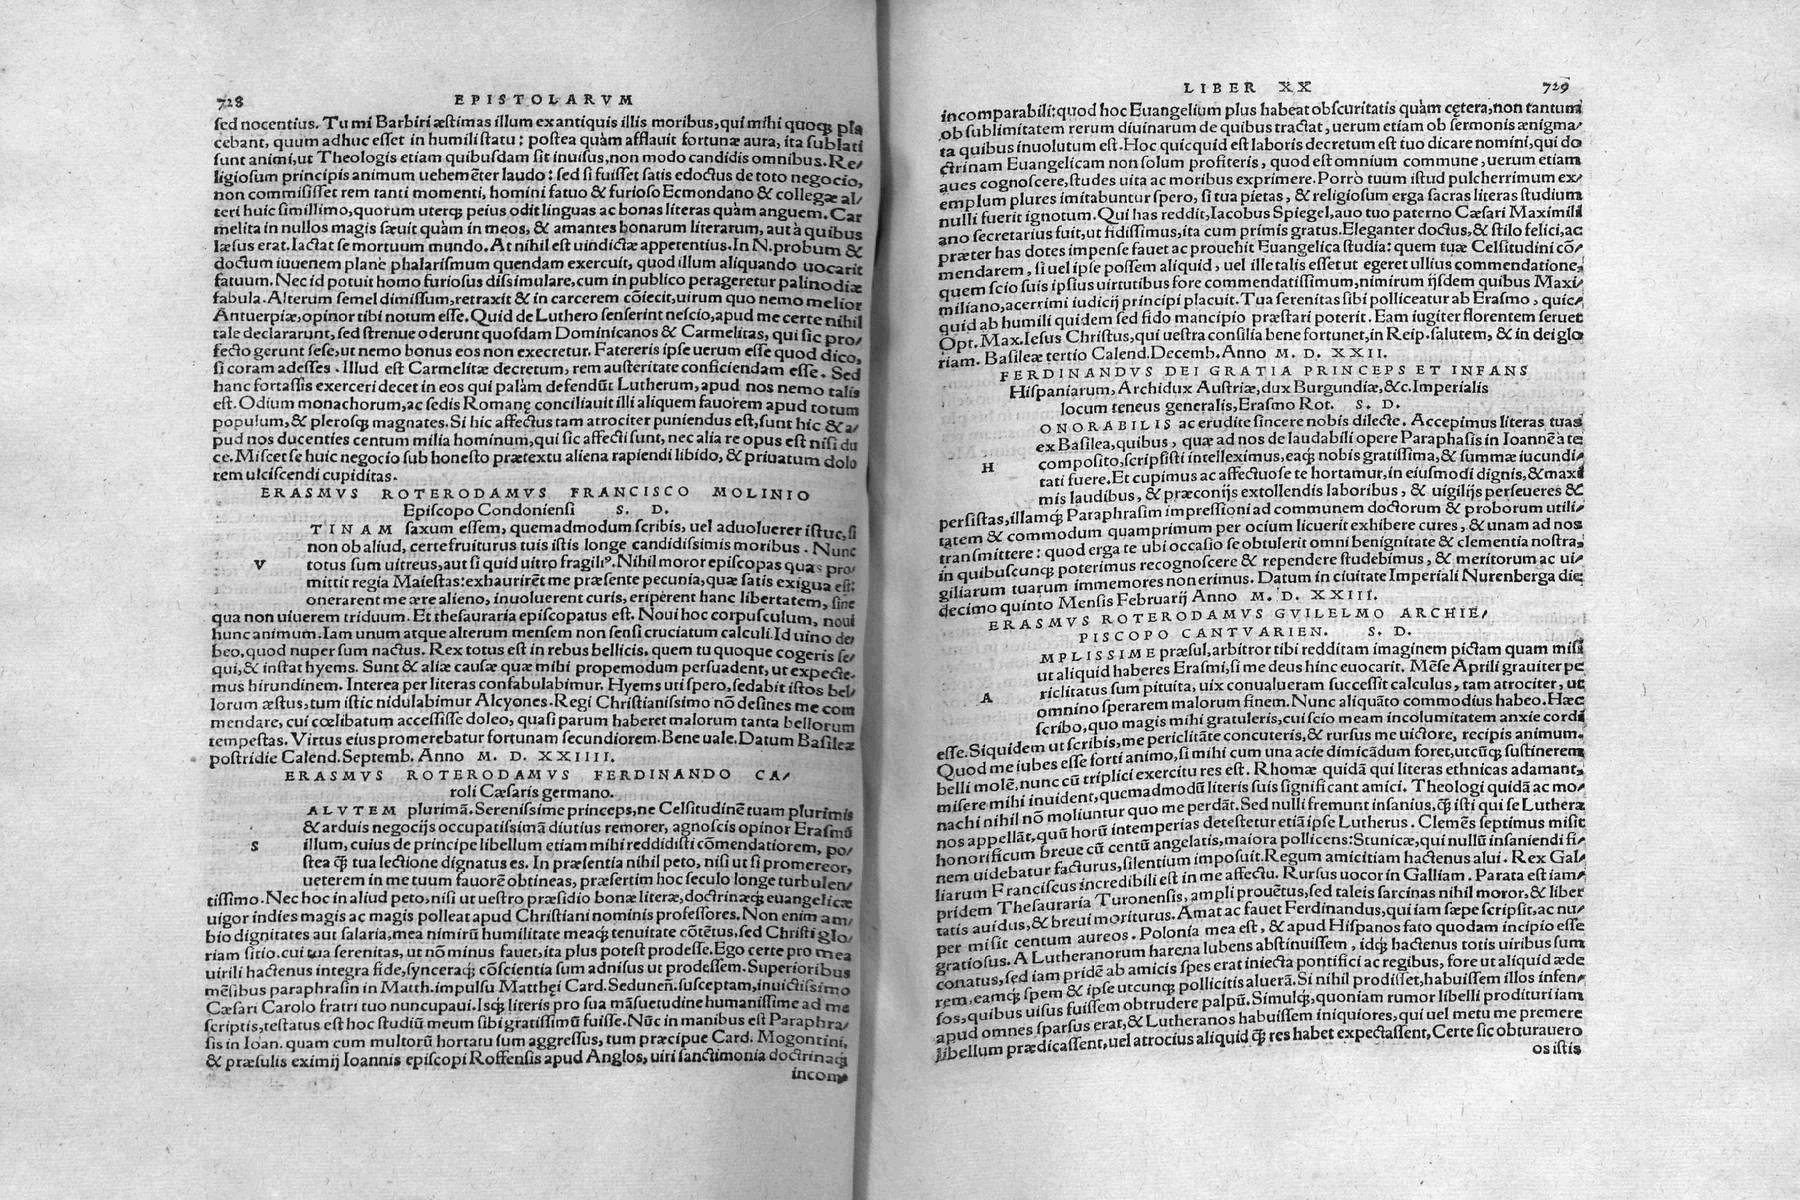 728 EPISTOLARVM
sed nocentius. Tu mi Barbiri æstimas illum ex antiquis illis moribus, qui mihi quoqꝫ pla
cebant, quum adhuc esset in humili statu: postea quàm afflauit fortunæ aura, ita sublati
sunt animi, ut Theologis etiam quibusdam sit inuisus, non modo candidis omnibus. Re/
ligiosum principis animum uehemēter laudo: sed si fuisset satis edoctus de toto negocio,
non commisisset rem tanti momenti, homini fatuo & furioso Ecmondano & collegæ al/
teri huic simillimo, quorum uterqꝫ peius odit linguas ac bonas literas quàm anguem. Car
melita in nullos magis sæuit quàm in meos, & amantes bonarum literarum, aut à quibus
læsus erat. Iactat se mortuum mundo. At nihil est uindictæ appetentius. In N. probum &
doctum iuuenem planè phalarismum quendam exercuit, quod illum aliquando uocarit
fatuum. Nec id potuit homo furiosus dissimulare, cum in publico perageretur palinodiæ
fabula. Alterum semel dimissum, retraxit & in carcerem cōiecit, uirum quo nemo melior
Antuerpiæ, opinor tibi notum esse. Quid de Luthero senserint nescio, apud me certe nihil
tale declararunt, sed strenue oderunt quosdam Dominicanos & Carmelitas, qui sic pro/
fecto gerunt sese, ut nemo bonus eos non execretur. Fatereris ipse uerum esse quod dico,
si coram adesses. Illud est Carmelitæ decretum, rem austeritate conficiendam esse. Sed
hanc fortassis exerceri decet in eos qui palàm defendūt Lutherum, apud nos nemo talis
est. Odium monachorum, ac sedis Romanę conciliauit illi aliquem fauorem apud totum
populum, & plerosqꝫ magnates. Si hic affectus tam atrociter puniendus est, sunt hic & a/
pud nos ducenties centum milia hominum, qui sic affecti sunt, nec alia re opus est nisi du
ce. Miscet se huic negocio sub honesto prætextu aliena rapiendi libido, & priuatum dolo
rem ulciscendi cupiditas.
ERASMVS ROTERODAMVS FRANCISCO MOLINIO
Episcopo Condoniensi S. D.
VTINAM saxum essem, quemadmodum scribis, uel aduoluerer istuc, si
non ob aliud, certe fruiturus tuis istis longe candidissimis moribus. Nunc
totus sum uitreus, aut si quid uitro fragiliꝰ. Nihil moror episcopas quas pro
mittit regia Maiestas: exhaurirēt me præsente pecunia, quæ satis exigua est:
onerarent me ære alieno, inuoluerent curis, eriperent hanc libertatem, sine
qua non uiuerem triduum. Et thesauraria episcopatus est. Noui hoc corpusculum, noui
hunc animum. Iam unum atque alterum mensem non sensi cruciatum calculi. Id uino de/
beo, quod nuper sum nactus. Rex totus est in rebus bellicis, quem tu quoque cogeris se/
qui, & instat hyems. Sunt & aliæ causæ quæ mihi propemodum persuadent, ut expecte-
mus hirundinem. Interea per literas confabulabimur. Hyems uti spero, sedabit istos bel/
lorum æstus, tum istic nidulabimur Alcyones. Regi Christianissimo nō desines me com
mendare, cui cœlibatum accessisse doleo, quasi parum haberet malorum tanta bellorum
tempestas. Virtus eius promerebatur fortunam secundiorem. Bene uale. Datum Basileæ
postridie Calend. Septemb. Anno M. D. XXIIII.
ERASMVS ROTERODAMVS FERDINANDO CA/
roli Cæsaris germano.
SALVTEM plurimā. Serenissime princeps, ne Celsitudinē tuam plurimis
& arduis negocijs occupatissimā diutius remorer, agnoscis opinor Erasmū
illum, cuius de principe libellum etiam mihi reddidisti cōmendatiorem, po/
stea qꝫ̄ tua lectione dignatus es. In præsentia nihil peto, nisi ut si promereor,
ueterem in me tuum fauorē obtineas, præsertim hoc seculo longe turbulen/
tissimo. Nec hoc in aliud peto, nisi ut uestro præsidio bonæ literæ, doctrinæqꝫ euangelicæ
uigor indies magis ac magis polleat apud Christiani nominis professores. Non enim am/
bio dignitates aut salaria, mea nimirū humilitate meaqꝫ tenuitate cōtētus, sed Christi glo/
riam sitio. cui tua serenitas, ut nō minus fauet, ita plus potest prodesse. Ego certe pro mea
uirili hactenus integra fide, synceraqꝫ cōscientia sum adnisus ut prodessem. Superioribus
mēsibus paraphrasin in Matth. impulsu Matthęi Card. Sedunen̄. susceptam, inuictissimo
Cæsari Carolo fratri tuo nuncupaui. Isqꝫ literis pro sua māsuetudine humanissime ad me
scriptis, testatus est hoc studiū meum sibi gratissimū fuisse. Nūc in manibus est Paraphra/
sis in Ioan. quam cum multorū hortatu sum aggressus, tum præcipue Card. Mogontini,
& præsulis eximij Ioannis episcopi Roffensis apud Anglos, uiri sanctimonia doctrinaqꝫ
incom/
LIBER XX 729
incomparabili: quod hoc Euangelium plus habeat obscuritatis quàm cętera, non tantum
ob sublimitatem rerum diuinarum de quibus tractat, uerum etiam ob sermonis ænigma/
ta quibus inuolutum est. Hoc quicquid est laboris decretum est tuo dicare nomini, qui do
ctrinam Euangelicam non solum profiteris, quod est omnium commune, uerum etiam
aues cognoscere, studes uita ac moribus exprimere. Porrò tuum istud pulcherrimum ex/
emplum plures imitabuntur spero, si tua pietas, & religiosum erga sacras literas studium
nulli fuerit ignotum. Qui has reddit, Iacobus Spiegel, auo tuo paterno Cæsari Maximili
ano secretarius fuit, ut fidissimus, ita cum primis gratus. Eleganter doctus, & stilo felici, ac
præter has dotes impense fauet ac prouehit Euangelica studia: quem tuæ Celsitudini cō/
mendarem, si uel ipse possem aliquid, uel ille talis esset ut egeret ullius commendatione,
quem scio suis ipsius uirtutibus fore commendatissimum, nimirum ijsdem quibus Maxi/
miliano, acerrimi iudicij principi placuit. Tua serenitas sibi polliceatur ab Erasmo, quic/
quid ab humili quidem sed fido mancipio præstari poterit. Eam iugiter florentem seruet
Opt. Max. Iesus Christus, qui uestra consilia bene fortunet, in Reip. salutem, & in dei glo
riam. Basileæ tertio Calend. Decemb. Anno M. D. XXII.
FERDINANDVS DEI GRATIA PRINCEPS ET INFANS
Hispaniarum, Archidux Austriæ, dux Burgundiæ, &c. Imperialis
locum teneus generalis, Erasmo Rot. S. D.
HONORABILIS ac erudite sincere nobis dilecte. Accepimus literas tuas
ex Basilea, quibus, quæ ad nos de laudabili opere Paraphasis in Ioannē à te
composito, scripsisti intelleximus, eaqꝫ nobis gratissima, & summæ iucundi/
tati fuere. Et cupimus ac affectuose te hortamur, in eiusmodi dignis, & maxi
mis laudibus, & præconijs extollendis laboribus, & uigilijs perseueres &
persistas, illamqꝫ Paraphrasim impressioni ad communem doctorum & proborum utili/
tatem & commodum quamprimum per ocium licuerit exhibere cures, & unam ad nos
transmittere: quod erga te ubi occasio se obtulerit omni benignitate & clementia nostra,
in quibuscunqꝫ poterimus recognoscere & rependere studebimus, & meritorum ac ui/
giliarum tuarum immemores non erimus. Datum in ciuitate Imperiali Nurenberga die
decimo quinto Mensis Februarij Anno M. D. XXIII.
ERASMVS ROTERODAMVS GVILELMO ARCHIE/
PISCOPO CANTVARIEN. S. D.
AMPLISSIME præsul, arbitror tibi redditam imaginem pictam quam misi
ut aliquid haberes Erasmi, si me deus hinc euocarit. Mēse Aprili grauiter pe
riclitatus sum pituita, uix conualueram successit calculus, tam atrociter, ut
omnino sperarem malorum finem. Nunc aliquāto commodius habeo. Hæc
scribo, quo magis mihi gratuleris, cui scio meam incolumitatem anxie cordi
esse. Siquidem ut scribis, me periclitāte concuteris, & rursus me uictore, recipis animum.
Quod me iubes esse forti animo, si mihi cum una acie dimicādum foret, utcūqꝫ sustinerem
belli molē, nunc cū triplici exercitu res est. Rhomæ quidā qui literas ethnicas adamant,
misere mihi inuident, quemadmodū literis suis significant amici. Theologi quidā ac mo/
nachi nihil nō moliuntur quo me perdāt. Sed nulli fremunt insanius, qꝫ̄ isti qui se Luthera
nos appellāt, quū horū intemperias detestetur etiā ipse Lutherus. Clemēs septimus misit
honorificum breue cū centū angelatis, maiora pollicens: Stunicæ, qui nullū insaniendi fi/
nem uidebatur facturus, silentium imposuit. Regum amicitiam hactenus alui. Rex Gal/
liarum Franciscus incredibili est in me affectu. Rursus uocor in Galliam. Parata est iam/
pridem Thesauraria Turonensis, ampli prouētus, sed taleis sarcinas nihil moror, & liber
tatis auidus, & breui moriturus. Amat ac fauet Ferdinandus, qui iam sæpe scripsit, ac nu/
per misit centum aureos. Polonia mea est, & apud Hispanos fato quodam incipio esse
gratiosus. A Lutheranorum harena lubens abstinuissem, idqꝫ hactenus totis uiribus sum
conatus, sed iam pridē ab amicis spes erat iniecta pontifici ac regibus, fore ut aliquid æde
rem, eamqꝫ spem & ipse utcunqꝫ pollicitis aluerā. Si nihil prodisset, habuissem illos infen/
sos, quibus uisus fuissem obtrudere palpū. Simulqꝫ, quoniam rumor libelli prodituri iam
apud omnes sparsus erat, & Lutheranos habuissem iniquiores, qui uel metu me premere
libellum prædicassent, uel atrocius aliquid qꝫ̄ res habet expectassent, Certe sic obturauero
os istis